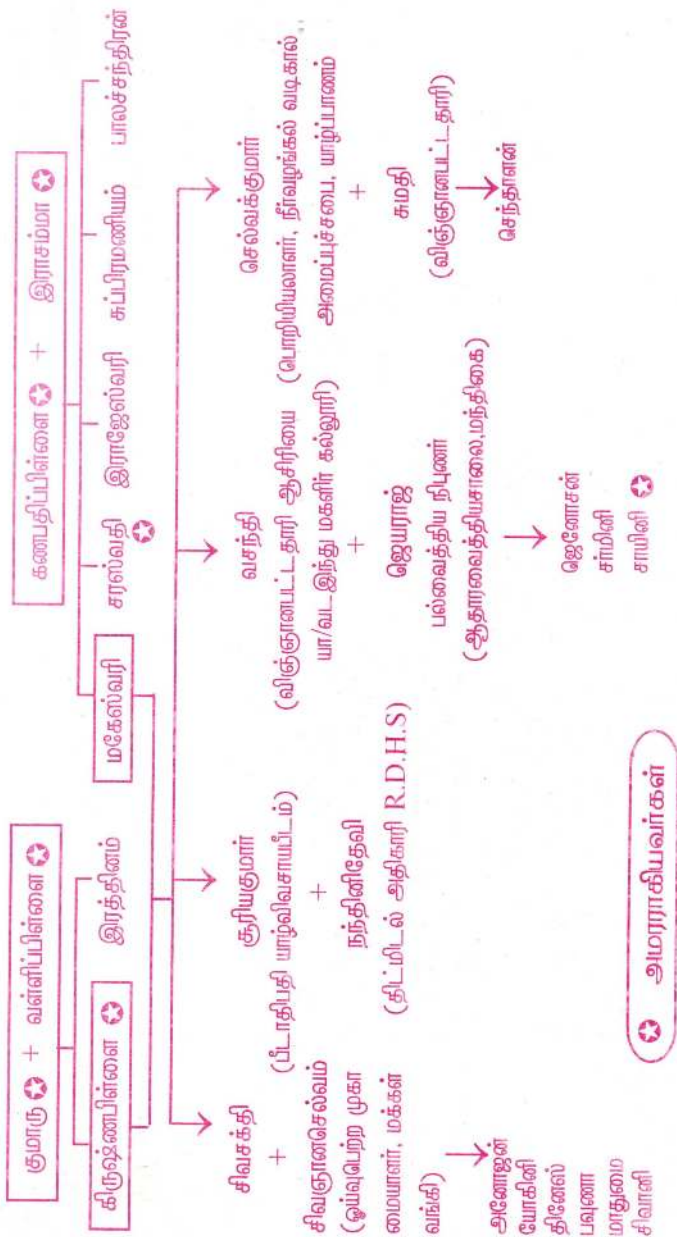 குமாரு + வள்ளிப்பிள்ளை
கணபதிப்பிள்ளை + இராசம்மா
கிருஷ்ணபிள்ளை
இரத்தினம்
மகேஸ்வரி
சரஸ்வதி
இராஜேஸ்வரி
சுப்பிரமணியம்
பாலச்சந்திரன்
சிவசக்தி
+
சிவஞானசெல்வம்
(ஓய்வுபெற்ற முகா
மையாளர், மக்கள்
வங்கி)
அனோஜன்
யோகினி
தினேஸ்
பவுணா
மாதுமை
சிவானி
சூரியகுமார்
(பீடாதிபதி யாழ்விவசாயபீடம்)
+
நந்தினிதேவி
(திட்மிடல் அதிகாரி R.D.H.S)
வசந்தி
(விஞ்ஞானபட்டதாரி ஆசிரியை
யா/வட இந்து மகளிர் கல்லூரி)
+
ஜெயராஜ்
பல்வைத்திய நிபுணர்
(ஆதாரவைத்தியசாலை,மந்திகை)
ஜெனோசன்
சர்மினி
சாயினி
செல்வக்குமார்
(பொறியியலாளர், நீர்வழங்கல் வடிகால்
அமைப்புச்சபை, யாழ்ப்பாணம்
+
சுமதி
(விஞ்ஞானபட்டதாரி)
செந்தாளன்
அமரராகியவர்கள்